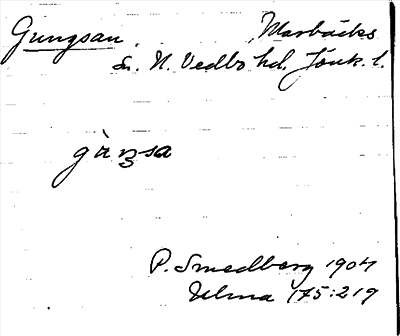 Gungsan Marbäcks
Sn. N. Vedbo hd. Jönk. l.
gàŋsa
P. Smedberg 1904
Ulma 175:219